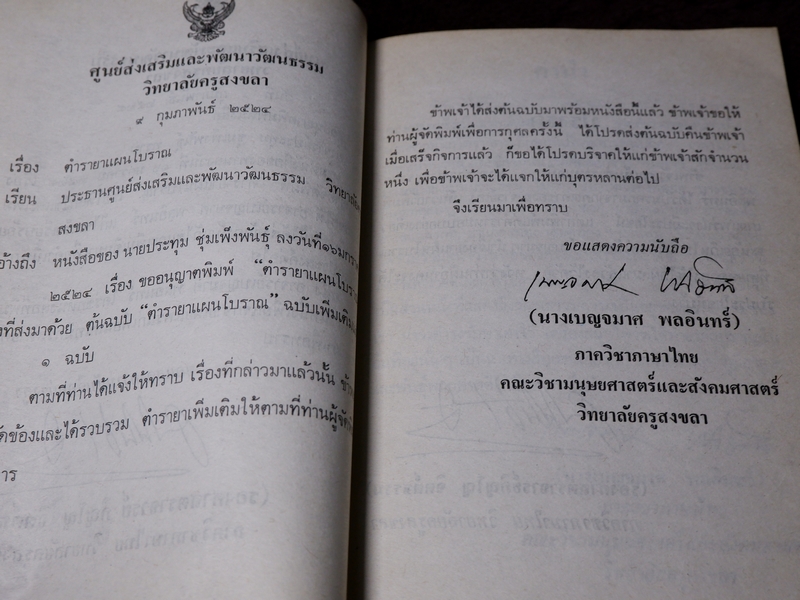 ศูนย์ส่งเสริมและพัฒนาวัฒนธรรม
วิทยาลัยครูสงขลา
๙ กุมภาพันธ์ ๒๕๒๔
เรื่อง ตำรายาแผนโบราณ
เรียน ประธานศูนย์ส่งเสริมและพัฒนาวัฒนธรรม
สงขลา
อ้างถึง หนังสือของ นายประทุม ชุ่มเพ็งพันธุ์ ลงวันที่๑๖
๒๕๒๔ เรื่อง ขออนุญาตพิมพ์ “ตำรายาแผนโบรา
ที่ส่งมาด้วย ต้นฉบับ “ตำรายาแผนโบราณ” ฉบับเพิ่มเติม
๑ ฉบับ
ตามที่ท่านได้แจ้งให้ทราบ เรื่องที่กล่าวมาแล้วนั้น
ข้องและได้รวบรวม ตำรายาเพิ่มเติมให้ตามที่ท่านผู้จัด
การ
ข้าพเจ้าได้ส่งต้นฉบับมาพร้อมหนังสือนี้แล้ว ข้าพเจ้าขอให้
ท่านผู้จัดพิมพ์เพื่อการกุศลครั้งนี้ ได้โปรดส่งต้นฉบับคืนข้าพเจ้า
เมื่อเสร็จกิจการแล้ว ก็ขอได้โปรดบริจาคให้แก่ข้าพเจ้าสักจำนวน
หนึ่ง เพื่อข้าพเจ้าจะได้แจกให้แก่บุตรหลานต่อไป
จึงเรียนมาเพื่อทราบ
ขอแสดงความนับถือ
(นางเบญจมาศ พลอินทร์)
ภาควิชาภาษาไทย
คณะวิชามนุษยศาสตร์และสังคมศาสตร์
วิทยาลัยครูสงขลา